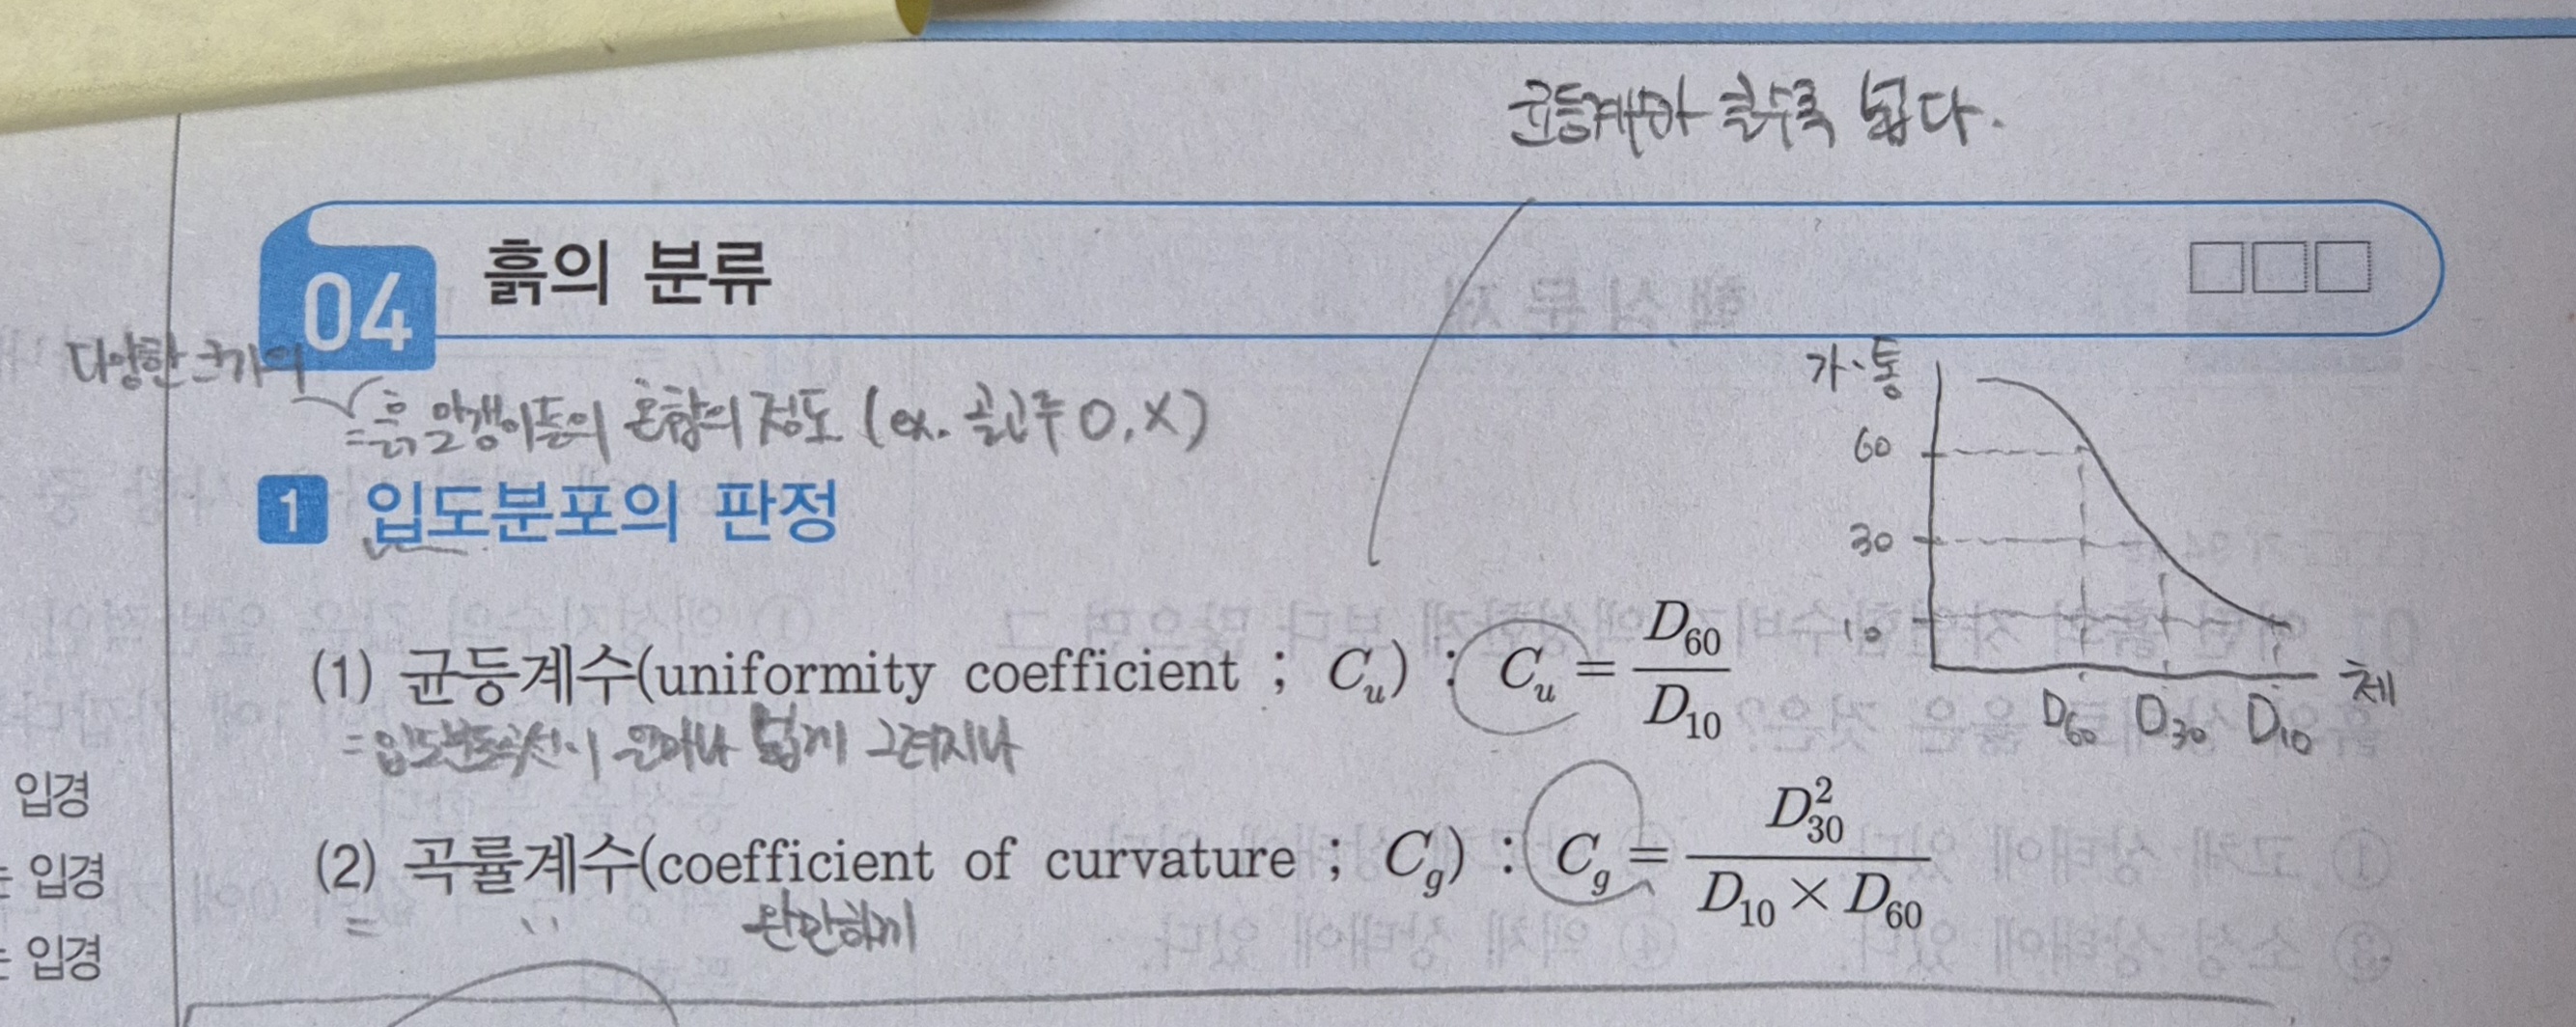 균등계수가 클수록 넓다.
04 흙의 분류
다양한 크기의
=흙 알갱이들의 혼합의 정도 (ex. 골고루 O, X)
1 입도분포의 판정
(1) 균등계수(uniformity coefficient ; Cu) : Cu = D60 / D10
=입도분포곡선이 얼마나 넓게 그려지나
(2) 곡률계수(coefficient of curvature ; Cg) : Cg = D30² / (D10 × D60)
= '' 완만하게
가·통
60
30
10
체
D60 D30 D10
입경
는 입경
는 입경